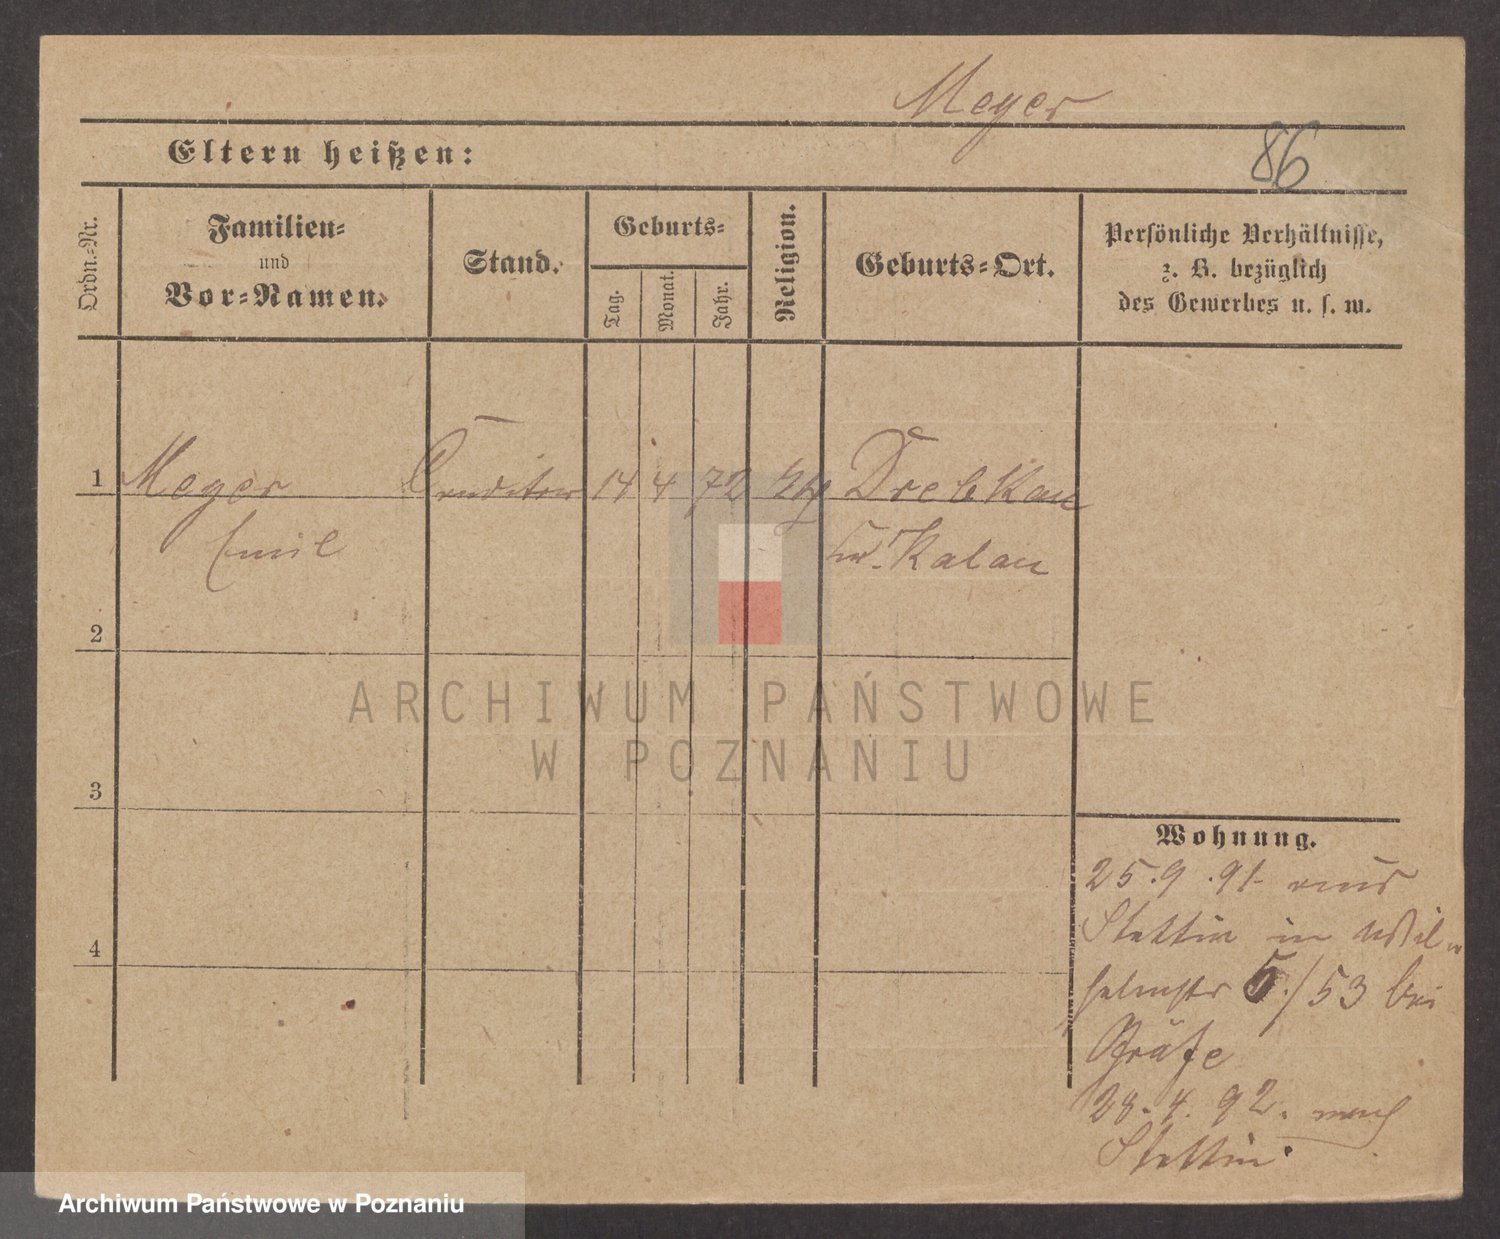 Meyer
Eltern heißen:
86
Ordn.-Nr.
Familien-
und
Vor-Namen.
Stand.
Geburts-
Tag.
Monat.
Jahr.
Religion.
Geburts-Ort.
Persönliche Verhältnisse,
z. B. bezüglich
des Gewerbes u. s. w.
1 Meyer Conditor 14 4 72 Drebkau
Emil Kalau
2
3
4
Wohnung.
25.9.91. aus
Stettin in Wil-
helmstr 5./53 bei
Gräfe
28.4.92. nach
Stettin.
ARCHIWUM PAŃSTWOWE
W POZNANIU
Archiwum Państwowe w Poznaniu